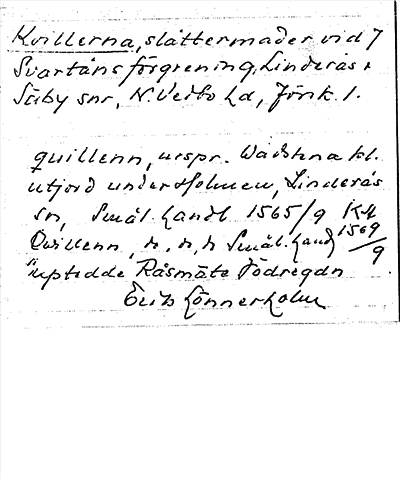 Kvillerna, slåttermader vid 7
Svartåns förgrening, Linderås +
Säby snr, N. Vedbo hd, Jönk. l.
quillenn, urspr. Wadstena kl.
utjord under Holmen, Linderås
sn, Smål. handl 1565/9 K4
Qvillenn, Smål. hand 1569/9
uptedde Råsmäte
Erik Lönnerholm